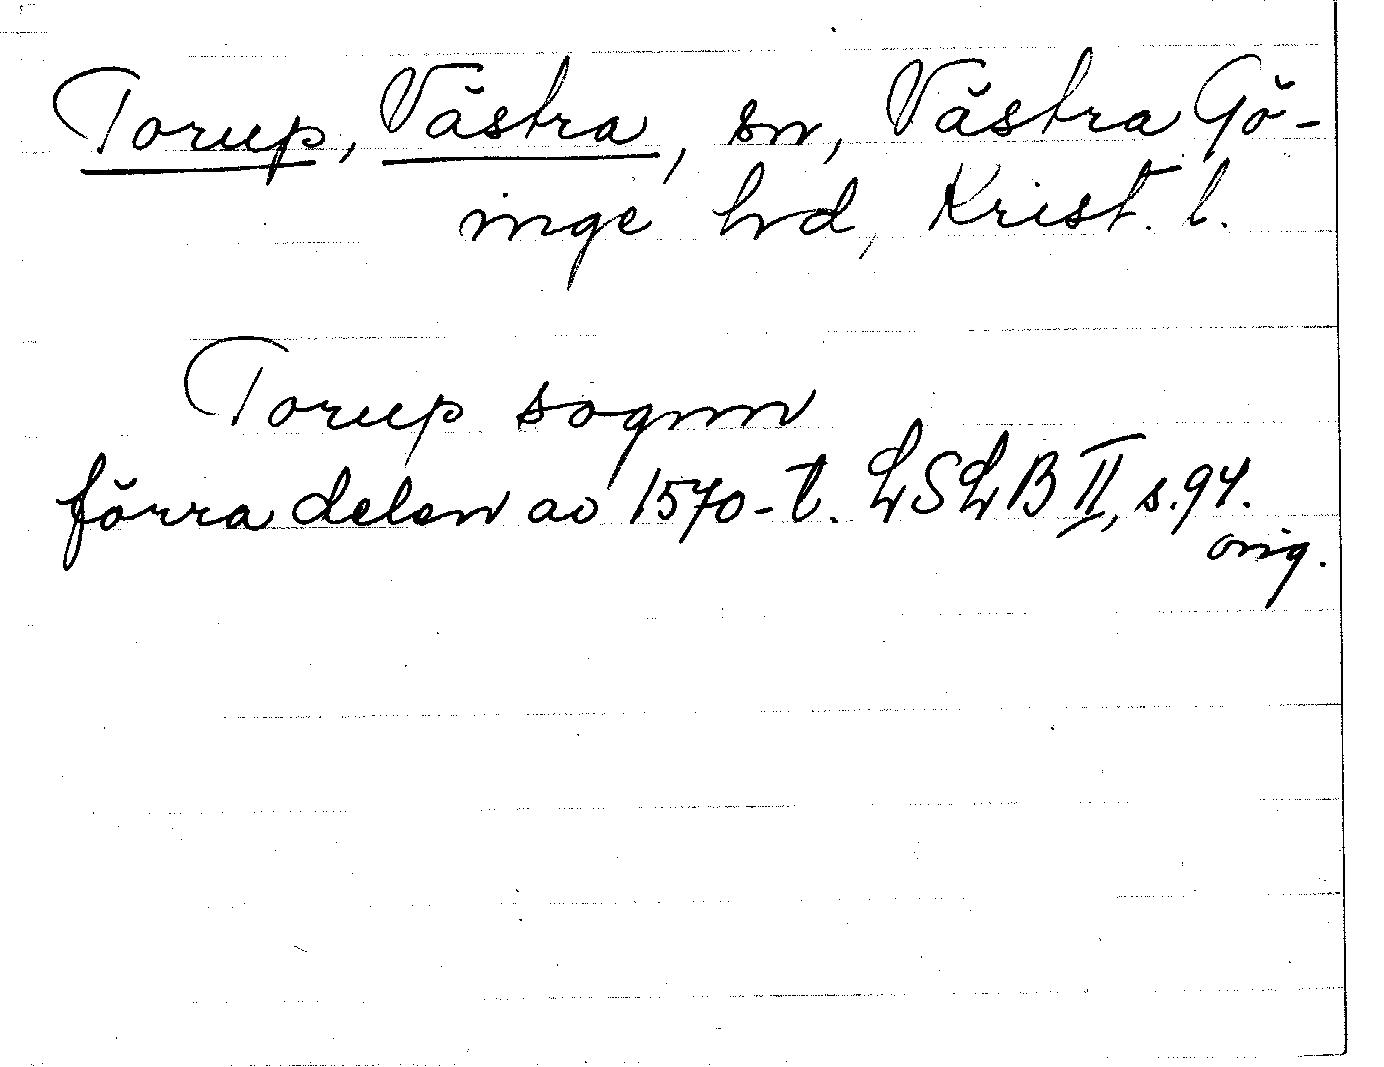 Torup, Västra, sn, Västra Gö-
inge hd, Krist. l.
Torup sognn
förra delen av 1570-t. LSLB II, s.94.
orig.